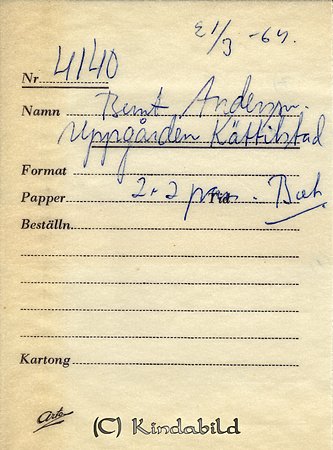 21/3 -64.
Nr 4140
Namn Bernt Anderson.
Uppgården Kättilstad
Format
Papper 2 + 2 prov. Bet.
Beställn.
Kartong
(C) Kindabild